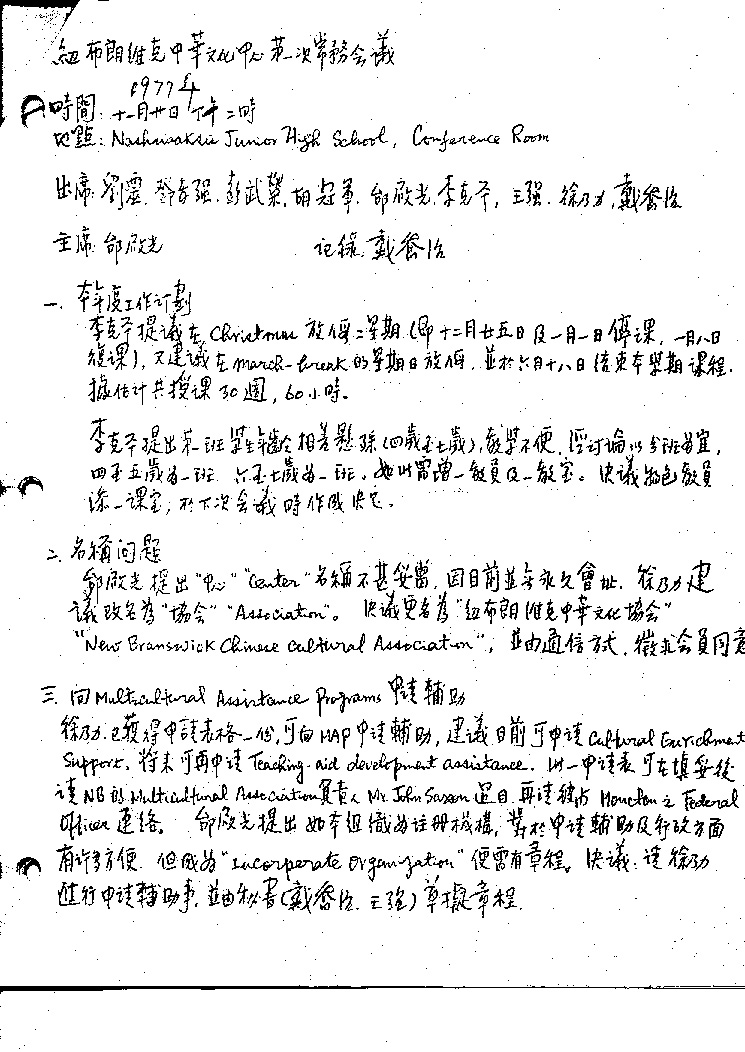 紐布朗維克中華文化中心第一次常務会议
1977年
時間: 十一月廿日 下午二時
地點: Nashwaaksis Junior High School, Conference Room
出席: 劉震, 鄧春强, 彭武榮, 胡冠軍, 邰啟光, 李克平, 王强, 徐乃力, 戴喬治
主席: 邰啟光 记録: 戴喬治
一. 本年度工作计劃
李克平提議在 Christmas 放假二星期 (即十二月廿五日及一月一日停课, 一月八日
復课), 又建议在 march-break 的星期日放假, 並於六月十八日结束本學期課程.
據估计共授课30週, 60小時。
李克平提出第一班學生年龄相差懸殊 (四歲至七歲), 教學不便, 经讨論以分班為宜,
四至五歲為一班, 六至七歲為一班, 如此需增一教員及一教室。决议物色教員
添一課室, 於下次会议時作成决定。
二. 名稱问题
邰啟光提出"中心" "Center" 名稱不甚妥當, 因目前並無永久會址. 徐乃力建
議改名為"協会" "Association"。决议更名為"紐布朗維克中華文化協会"
"New Branswick Chinese Cultural Association", 並由通信方式, 徵求会員同意
三. 向 Multicultural Assistance Programs 申请輔助
徐乃力已獲得申請表格一份, 可向 MAP 申请輔助, 建議目前可申请 Cultural Enrichment
Support, 将来可再申请 Teaching-aid development assistance. 此一申请表可在填妥後
请 NB 的 Multicultural Association 負责人 Mr. John Sasson 過目, 再请 Moncton 之 Federal
Officer 連络。 邰啟光提出如本组織為注册機構, 對於申请輔助及行政方面
有许多方便, 但成為 "incorperate organization" 便需有章程。决议: 请徐乃力
進行申请輔助事, 並由秘書 (戴喬治, 王强) 草擬章程.